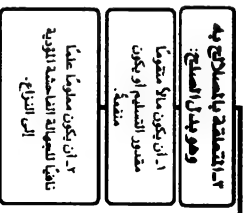 ٣- المتعلقة بالمصالح به
وهو بدل الصلح:
١- أن يكون مالاً متقوماً
مقدور التسليم أو يكون
منفعةً.
٢- أن يكون معلومًا علمًا
نافيًا للجهالة الفاحشة المؤدية
إلى النزاع.